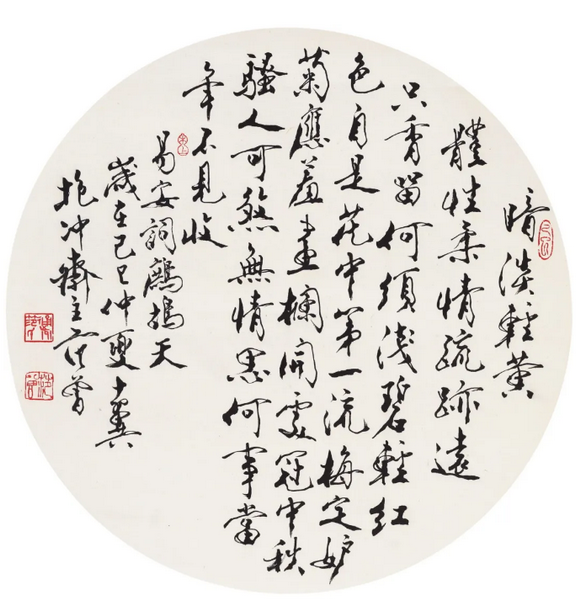 暗淡輕黃
體性柔情疏跡遠
只香留何須淺碧輕紅
色自是花中第一流梅定妒
菊應羞畫欄開處冠中秋
騷人可煞無情思何事當
年不見收
易安詞鷓鴣天
歲在己巳仲夏十翼
抱冲齋主范曾